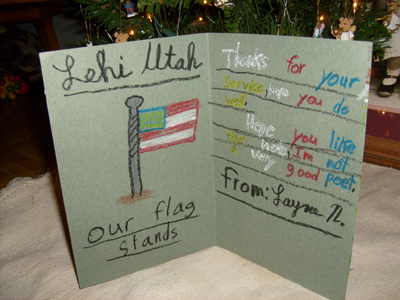 Lehi Utah
Our flag
Stands
Thanks for your
service, hope you do
well. Have you like
this note, I'm not
very good poet.
From: Layne N.